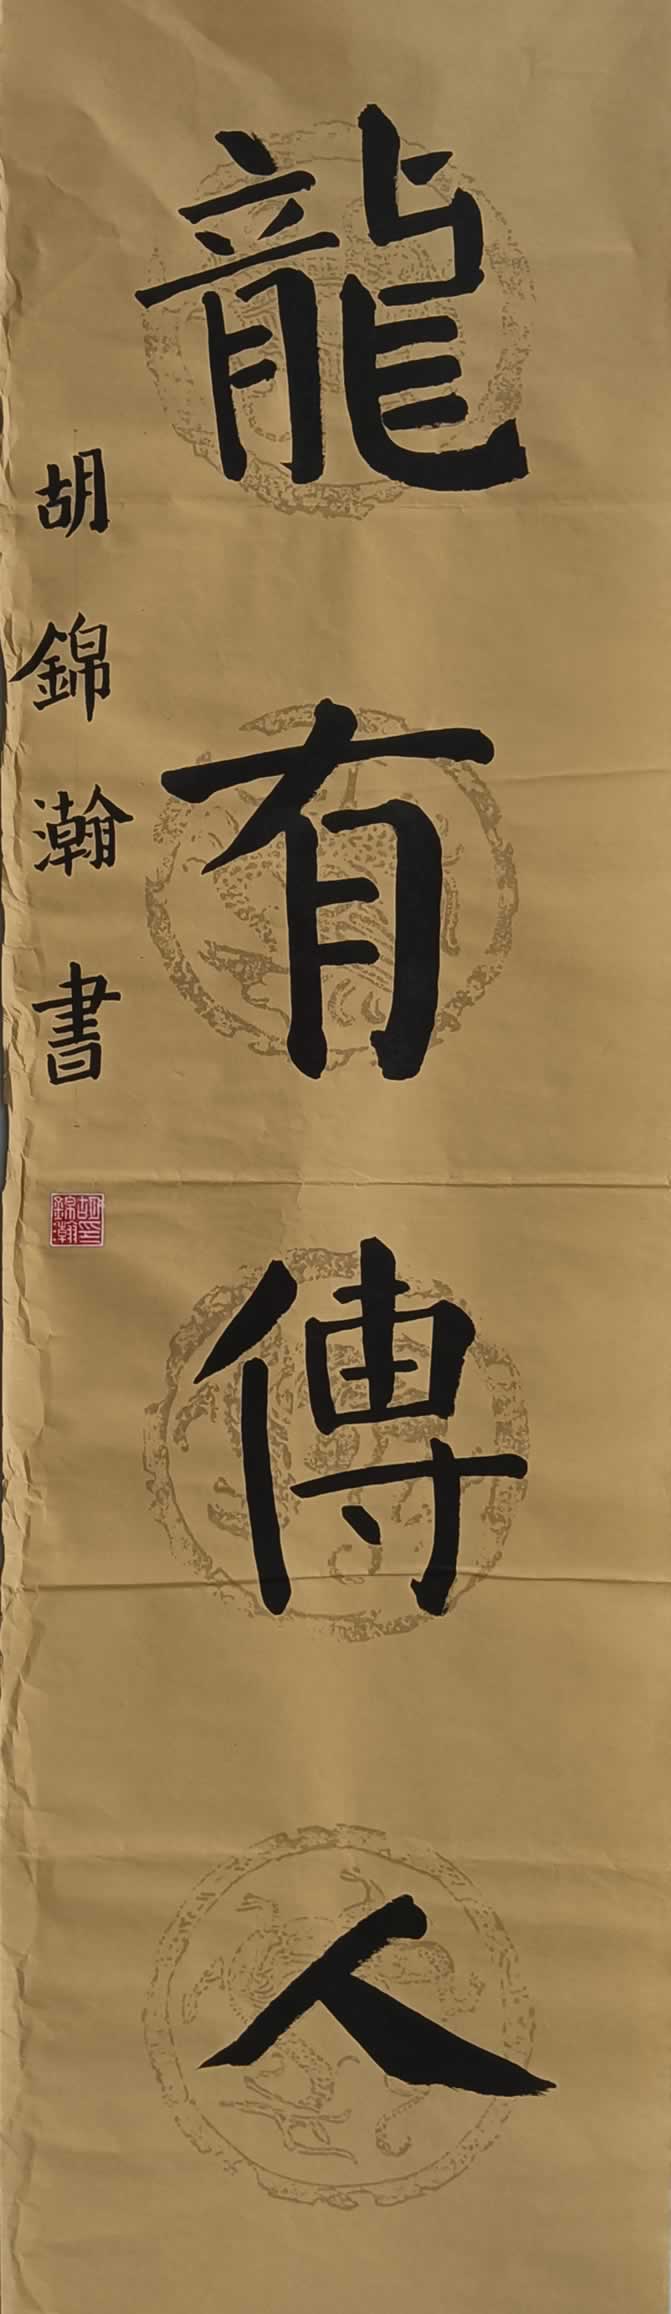 龍有傳人
胡錦瀚書
胡印錦瀚